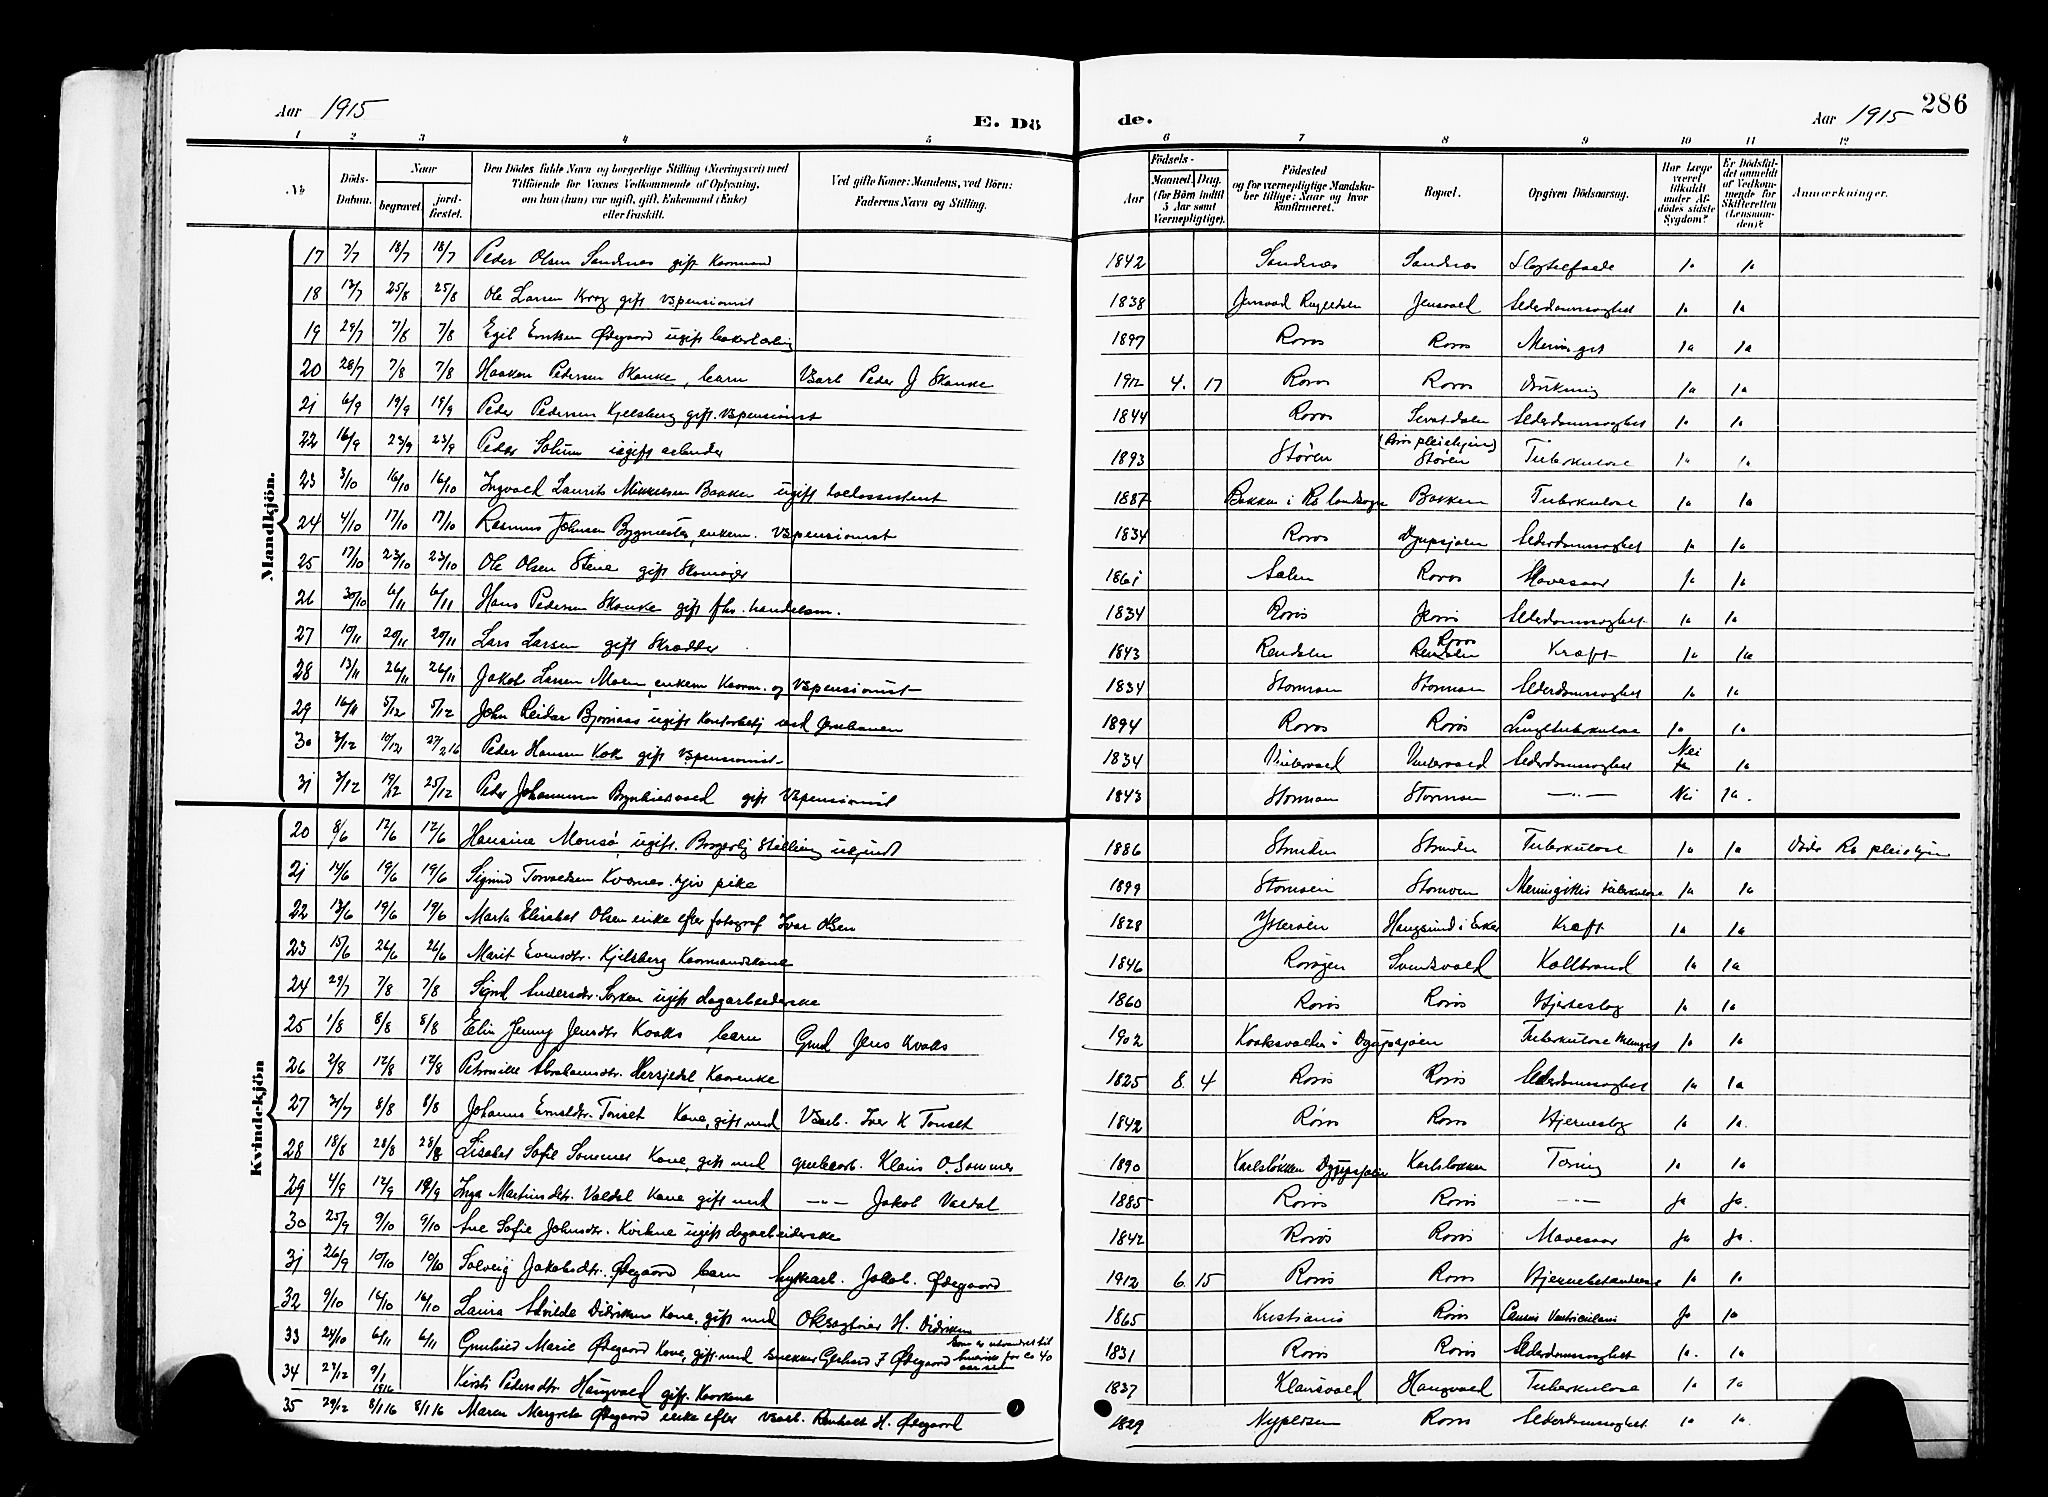 286
Aar 1915
E. Dö
de.
Aar 1915
1 2 3 4 5 6 7 8 9 10 11 12
No
Döds-Datum.
Naar
begravet.
jordfæstet.
Den Dödes fulde Navn og borgerlige Stilling (Næringsvei) med Tilföiende for Voxnes Vedkommende af Oplysning, om hun (hun) var ugift, gift, Enkemand (Enke) eller fraskilt.
Ved gifte Koner: Mandens, ved Börn: Faderens Navn og Stilling.
Födsels-
Aar
Maaned. Dag.
(for Börn indtil 5 Aar samt Værnepligtige).
Födested og for værnepligtige Mandskaber tillige: Naar og hvor konfirmeret.
Bopæl.
Opgiven Dödsaarsag.
Har Læge været tilkaldt under Afdödes sidste Sygdom?
Er Dödsfaldet anmeldt af Vedkommende for Skifteretten (Lensmanden)?
Anmærkninger.
Mandkjön.
17 7/7 18/7 18/7 Peder Olsen Sandnes gift Kaarmand 1842 Sandnes Sandnes Ja Ja
18 13/7 25/8 25/8 Ole Larsen Krog gift Vspensionist 1838 Jensvold Jensvold Alderdomssvaghet Ja Ja
19 29/7 7/8 7/8 Egil Eriksen Ødegaard ugift 1897 Roros Roros Ja Ja
20 28/7 7/8 7/8 Haakon Pedersen Skanke, barn Vsarb Peder J Skanke 1912 4. 17 Roros Roros Ja Ja
21 6/9 19/9 19/9 Peder Pedersen Kjelsberg gift. Vspensionist 1844 Roros Alderdomssvaghet Ja Ja
22 16/9 23/9 23/9 Peder Solum ugift arbeider 1893 Støren (Roros pleiehjem) Støren Tuberkulose Ja Ja
23 3/10 16/10 16/10 Ingvald Laurits Mikkelsen Bakken ugift 1887 Bakken i Rs landsogn Bakken Tuberkulose Ja Ja
24 4/10 17/10 17/10 Rasmus Johnsen Bygmester, enkem. Vspensionist 1834 Roros Djupsjøen Alderdomssvaghet Ja Ja
25 17/10 23/10 23/10 Ole Olsen Stene gift Skomager 1861 Aalen Roros Mavesaar Ja Ja
26 30/10 6/11 6/11 Hans Pedersen Skanke gift fhv. handelsm. 1834 Roros Roros Alderdomssvaghet Ja Ja
27 10/11 20/11 20/11 Lars Larsen gift Skrædder 1843 Rendalen Roros Kræft Ja Ja
28 13/11 26/11 26/11 Jakob Larsen Moen, enkem Kaarm. og Vspensionist 1834 Stormoen Stormoen Alderdomssvaghet Ja Ja
29 16/11 5/12 5/12 John Reidar Bjørnaas ugift Kontorbetj ved Jernbanen 1894 Roros Roros Lungetuberkulose Ja Ja
30 3/12 10/12 27/2 16 Peder Hansen Kok gift Vspensionist 1834 Vintervold Vintervold Alderdomssvaghet Nei Ja
31 3/12 19/12 25/12 Peder Johannesen gift Vspensionist 1843 Stormoen Stormoen —"— Nei Ja.
Kvindekjön
20 8/6 12/6 12/6 Hansine Monsø, ugift. Borgerlig Stilling ukjendt 1886 Singsås Tuberkulose Ja Ja Døde Rs pleiehjem
21 14/6 19/6 19/6 Sigrid Torvaldsen Kvernes. pike 1899 Stormoen Stormoen Meningitis tuberkulose Ja Ja
22 13/6 19/6 19/6 Marta Elisabet Olsen enke efter fotograf Ivar Olsen 1828 Ytterøen Haugsund i Eker Kræft Ja Ja
23 15/6 26/6 26/6 Marit Evensdtr. Kjelsberg Kaarmandskone 1846 Svendsvold Koldbrand Ja Ja
24 29/7 7/8 7/8 Sigrid Andersdtr. ugift dagarbeiderske 1860 Roros Roros Hjerteslag Ja Ja
25 1/8 8/8 8/8 Elin Jenny Jensdtr Kvaks, barn Gmd Jens Kvaks 1902 i Djupsjøen Tuberkulose Ja Ja
26 2/8 12/8 12/8 Petronille Abrahamsdtr. Hersjedal, Kaarenke 1825 8. 4 Roros Roros Alderdomssvaghet Ja Ja
27 31/7 8/8 8/8 Tønset Kone, gift med Vsarb. Iver K Tønset 1842 Røros Roros Hjerneslag Ja Ja.
28 18/8 28/8 28/8 Lisabet Sofie Sommer Kone, gift med grubearb. Klaus O. Sommer 1890 Karlsløkken Djupsjøen Karlsløkken Tæring Ja Ja
29 4/9 12/9 12/9 Inga Martinsdtr. Valdal Kone gift med —"— Jakob Valdal 1885 Roros Roros —"— Ja Ja.
30 25/9 9/10 9/10 Ane Sofie Johnsdtr. Kvikne ugift dagarbeiderske 1842 Roros Roros Mavesaar Ja Ja.
31 26/9 10/10 10/10 Solveig Jakobsdtr. Ødegaard, barn Hyttearb. Jakob. Ødegaard 1912 6. 15 Roros Roros Hjernebetændelse Ja Ja
32 9/10 16/10 16/10 Laura Alvilde Didriksen Kone, gift med H. Didriksen 1865 Kristiania Roros Cancer Ventriculi Ja Ja
33 24/10 6/11 6/11 Gunhild Marie Ødegaard Kone, gift. med snekker Gerhard J Ødegaard som er utvandret til Amerika for ca 40 aar sen 1831 Roros Roros Alderdomssvaghet Ja. Ja
34 27/12 9/1 1916 Kirsti Pedersdtr. Haugvold gift. Kaarkone 1837 Klausvold Haugvold Tuberkulose Ja Ja
35 29/12 8/1 16 8/1 16 Maren Margreta Ødegaard enke efter Vsarb. H. Ødegaard 1829 Nyplassen Roros Alderdomssvaghet Ja Ja.